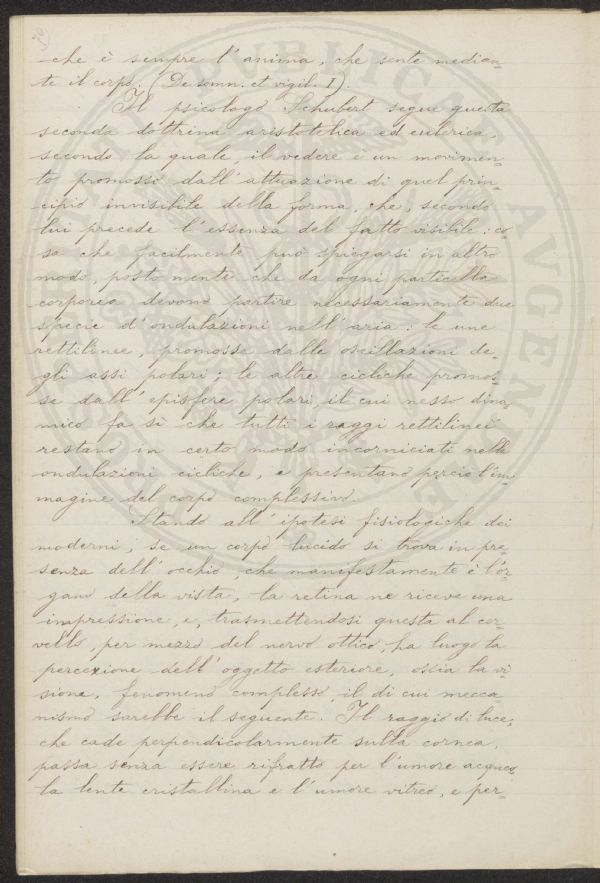 che è sempre l'anima, che sente median-
te il corpo. (De somn. et vigil. I).
Il psicologo Schubert segue questa
seconda dottrina aristotelica ed esterica,
secondo la quale, il vedere è un movimen-
to promosso dall'attuazione di quel prin-
cipio invisibile della forma, che, secondo
lui precede l'essenza del fatto visibile: co-
sa che facilmente può spiegarsi in altro
modo, posto mente che da ogni particella
corporea devono partire necessariamente due
specie d'ondulazioni nell'aria: le une
rettilinee, promosse dalle oscillazioni de-
gli assi polari; le altre cicliche promos-
se dall'episfere polari, il cui nesso dina-
mico fa sì che tutti i raggi rettilinei
restano in certo modo incorniciati nelle
ondulazioni cicliche, e presentano perciò l'im-
magine del corpo complessivo.
Stando all'ipotesi fisiologiche dei
moderni, se un corpo lucido si trova in pre-
senza dell'occhio, che manifestamente è l'or-
gano della vista, la retina ne riceve una
impressione, e, trasmettendosi questa al cer-
vello, per mezzo del nervo ottico, ha luogo la
percezione dell'oggetto esteriore, ossia la vi-
sione, fenomeno complesso, il di cui mecca-
nismo sarebbe il seguente. Il raggio di luce,
che cade perpendicolarmente sulla cornea,
passa senza essere rifratto per l'umore acqueo,
la lente cristallina e l'umore vitreo, e per-